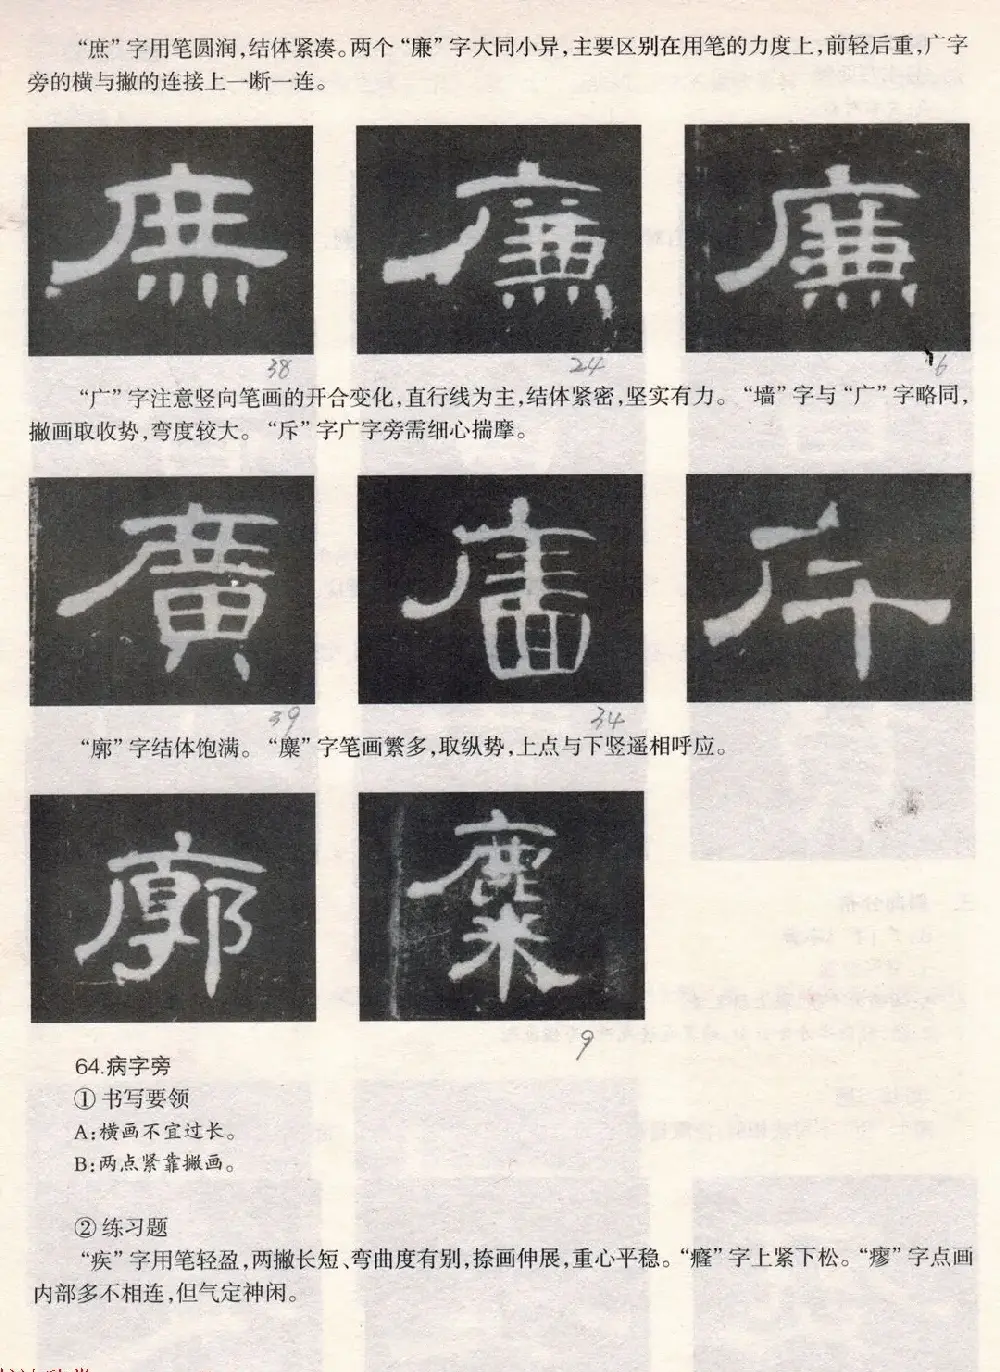 “庶”字用笔圆润,结体紧凑。两个“廉”字大同小异,主要区别在用笔的力度上,前轻后重,广字
旁的横与撇的连接上一断一连。
庶 廉 廉
38 24 6
“广”字注意竖向笔画的开合变化,直行线为主,结体紧密,坚实有力。“墙”字与“广”字略同,
撇画取收势,弯度较大。“斥”字广字旁需细心揣摩。
廣
39 34
“廓”字结体饱满。“麋”字笔画繁多,取纵势,上点与下竖遥相呼应。
廓 麋
9
64.病字旁
①书写要领
A:横画不宜过长。
B:两点紧靠撇画。
②练习题
“疾”字用笔轻盈,两撇长短、弯曲度有别,捺画伸展,重心平稳。“癃”字上紧下松。“瘳”字点画
内部多不相连,但气定神闲。